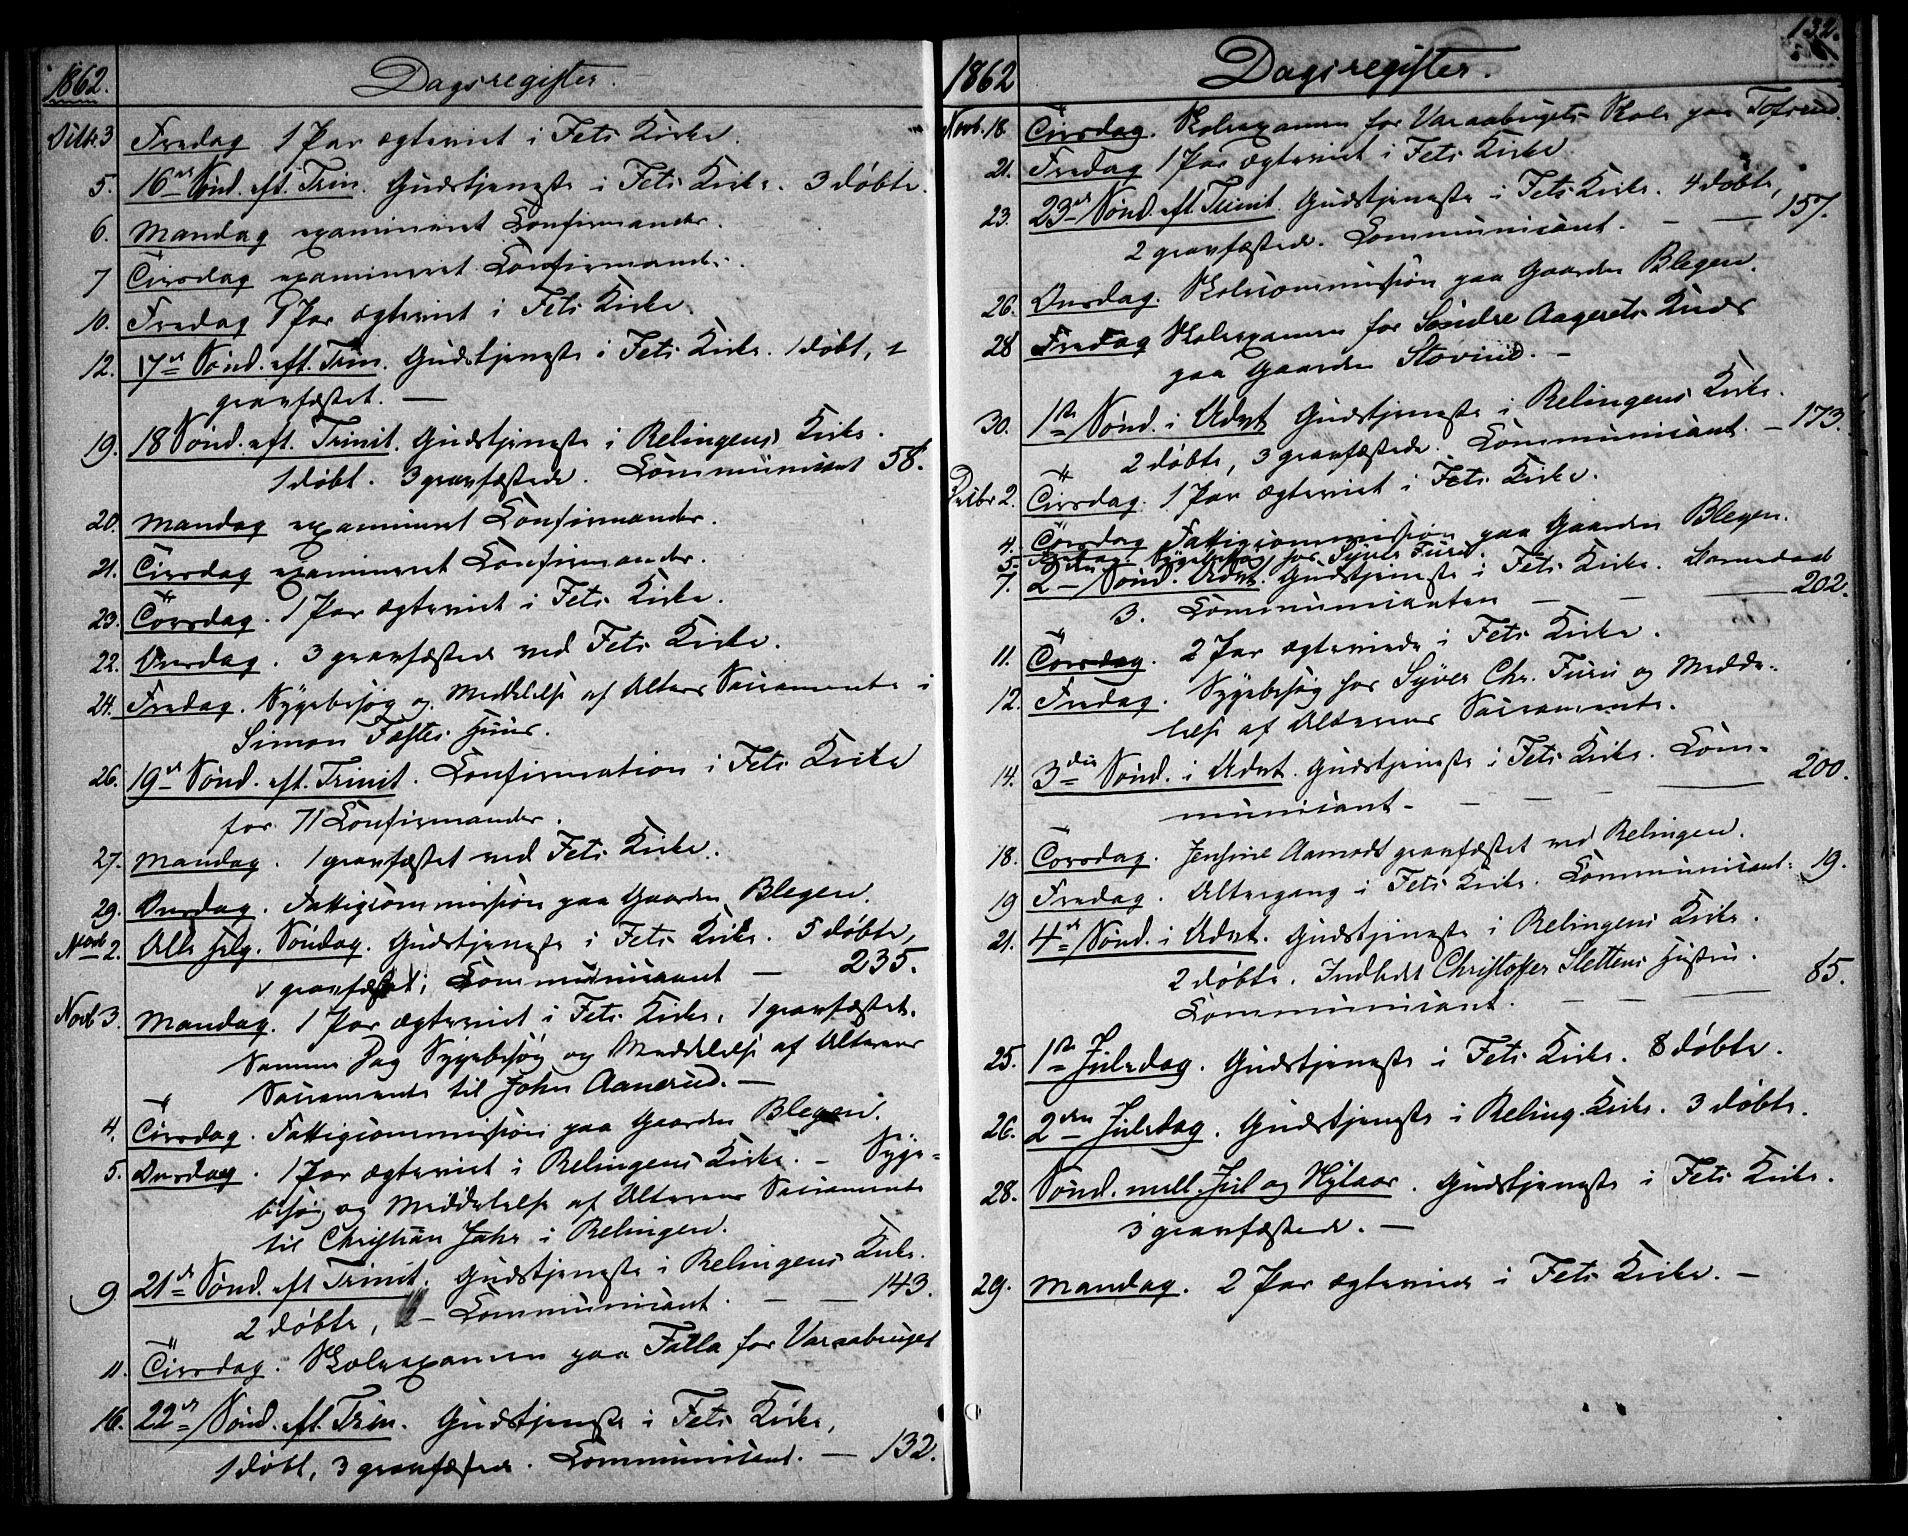 1862. Dagsregister.
Octbr. 3 Fredag 1 Par ægteviet i Fets Kirke.
5. 16de Sønd. eft. Trin. Gudstjeneste i Fets Kirke. 3 døbte.
6. Mandag examineret Confirmander.
7 Tirsdag examineret Confirmander.
10. Fredag 1 Par ægteviet i Fets Kirke.
12. 17de Sønd. eft. Trin. Gudstjeneste i Fets Kirke. 1 døbt, 1
gravfæstet. —
19. 18 Sønd. eft. Trinit. Gudstjeneste i Relingens Kirke.
1 døbt. 3 gravfæstede. Communicant 58.
20. Mandag examineret Confirmander.
21. Tirsdag examineret Confirmander.
23. Torsdag. 1 Par ægteviet i Fets Kirke.
22. Onsdag. 3 gravfæstede ved Fets Kirke.
24. Fredag. Sygebesøg og Meddelelse af Alters Sacramente i
Simon Fosters Huus.
26. 19de Sønd. eft. Trinit. Confirmation i Fets Kirke
for 71 Confirmander.
27. Mandag. 1 gravfæstet ved Fets Kirke.
29. Onsdag. Fattigcommission paa Gaarden Blegen.
Novb 2. Alle Helg. Søndag. Gudstjeneste i Fets Kirke. 5 døbte,
1 gravfæstet; Communicant — 235.
Novb 3. Mandag. 1 Par ægteviet i Fets Kirke, 1 gravfæstet.
Samme Dag Sygebesøg og Meddelelse af Alterens
Sacramente til John Aanerud. —
4. Tirsdag. Fattigcommission paa Gaarden Blegen.
5. Onsdag. 1 Par ægteviet i Relingens Kirke. — Syge-
besøg og Meddelelse af Alterens Sacramente
til Christian Jahr i Relingen.
9. 21de Sønd. eft Trinit. Gudstjeneste i Relingens Kirke.
2 døbte, — Communicant. — — 143.
11. Tirsdag. Skoleexamen paa Falla for Varaabruget
16. 22de Sønd. eft. Trin. Gudstjeneste i Fets Kirke,
1 døbt, 3 gravfæstede. Communicant. — 132.
132.
1862 Dagsregister.
Novb. 18 Tirsdag. Skoleexamen for Varaabrugets Skole paa Tofsrud.
21. Fredag 1 Par ægteviet i Fets Kirke.
23. 23de Sønd. eft. Trinit. Gudstjeneste i Fets Kirke. 4 døbte,
2 gravfæstede. Communicant. — — 157.
26. Onsdag. Skolecommission paa Gaarden Blegen.
28 Fredag Skoleexamen for Søndre Aagerets Kreds
paa Gaarden Stovind. —
30. 1ste Sønd. i Advt Gudstjeneste i Relingens Kirke.
2 døbte, 3 gravfæstede. Communicant. — 173.
Decbr 2. Tirsdag. 1 Par ægteviet i Fets Kirke.
4. Torsdag Fattigcommission paa Gaarden Blegen.
5. Fredag Sygebesøg hos Syver Furu.
7. 2 Sønd. Advt. Gudstjeneste i Fets Kirke. Barnedaab
3. Communicanten — — — 202.
11. Torsdag. 2 Par ægteviede i Fets Kirke.
12. Fredag. Sygebesøg hos Syver Chr. Furu og Medde-
lelse af Alterens Sacramente.
14. 3die Sønd. i Advt. Gudstjeneste i Fets Kirke. Com-
municant — — — — 200.
18. Torsdag. Jensine Aamodt gravfæstet ved Relingen.
19 Fredag. Altergang i Fets Kirke. Communicant: 19.
21. 4de Sønd. i Advt. Gudstjeneste i Relingens Kirke.
2 døbte. Indledt Christoffer Slettens Hustru.
Communicant. — — — 85.
25. 1ste Juledag. Gudstjeneste i Fets Kirke. 8 døbte.
26. 2den Juledag. Gudstjeneste i Reling. Kirke. 3 døbte.
28. Sønd. mell. Jul og Nytaar. Gudstjeneste i Fets Kirke.
3 gravfæstede. —
29. Mandag. 2 Par ægteviede i Fets Kirke. —